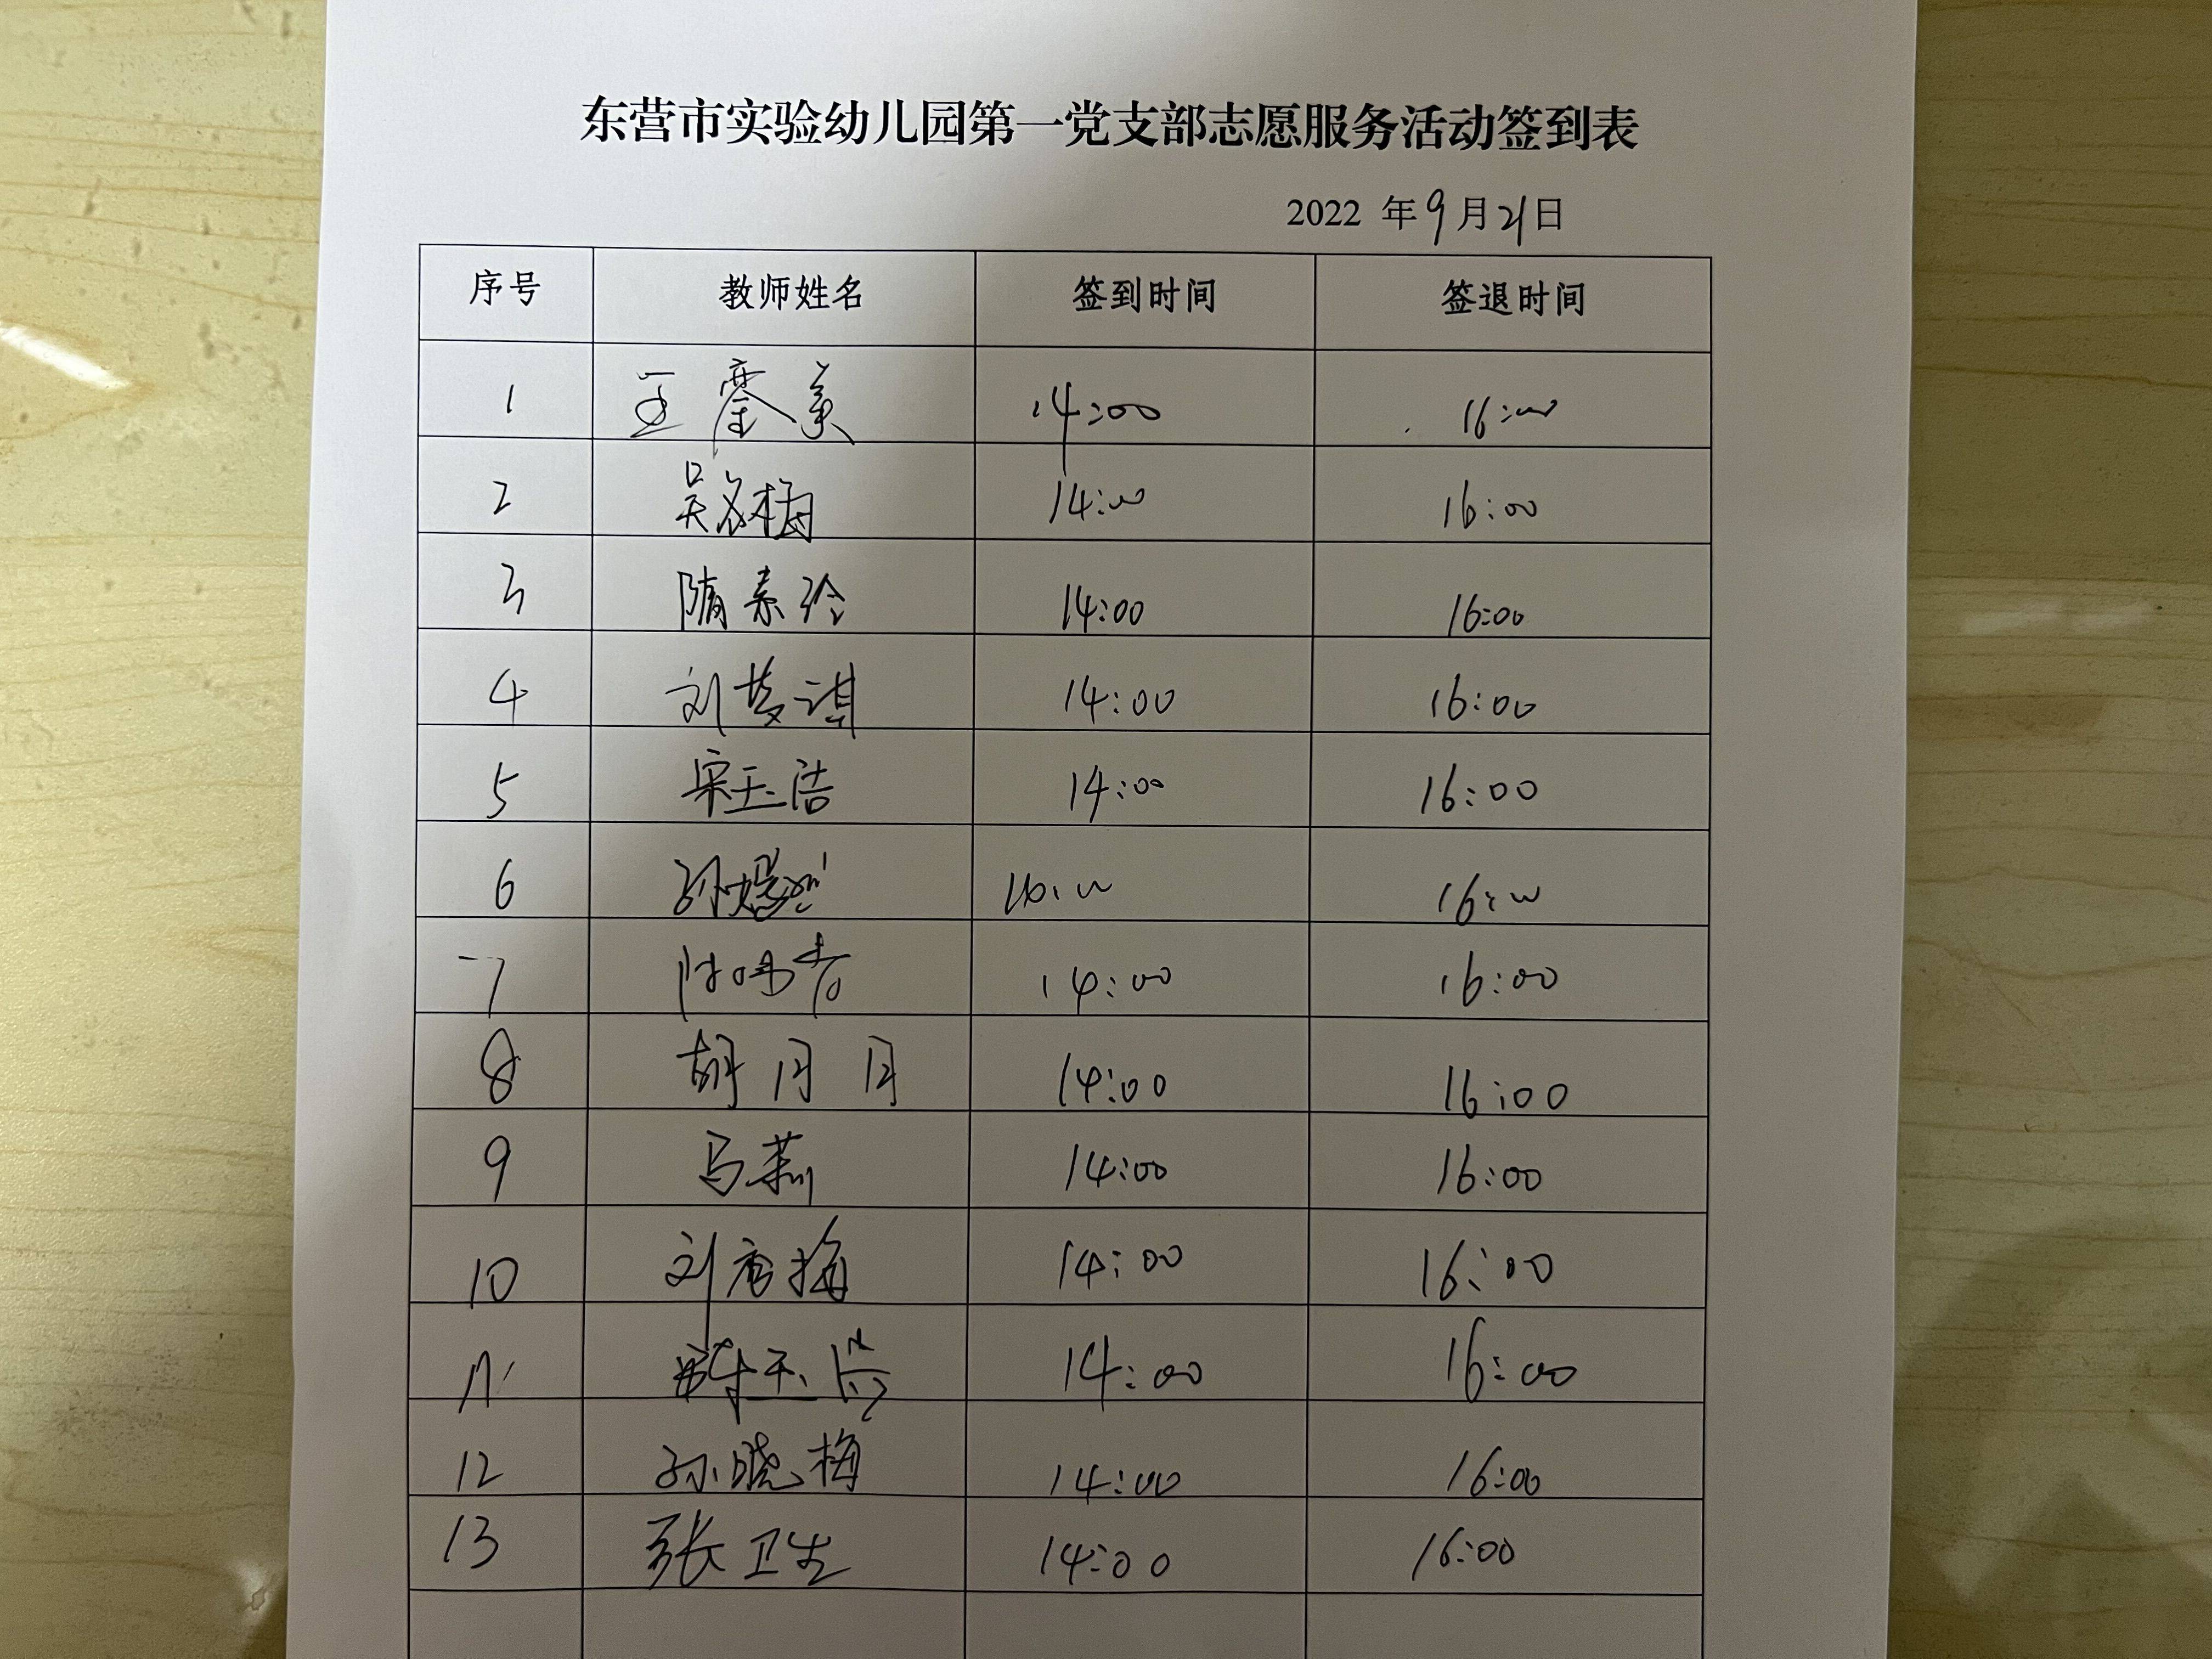 东营市实验幼儿园第一党支部志愿服务活动签到表
2022 年 9 月 21 日
序号 教师姓名 签到时间 签退时间
1 王 美 14:00 16:00
2 吴 梅 14:00 16:00
3 隋素玲 14:00 16:00
4 刘梦琪 14:00 16:00
5 宋玉洁 14:00 16:00
6 孙 16:00 16:00
7 14:00 16:00
8 胡月月 14:00 16:00
9 马燕 14:00 16:00
10 刘 梅 14:00 16:00
11 薛玉 14:00 16:00
12 孙晓梅 14:00 16:00
13 张卫生 14:00 16:00